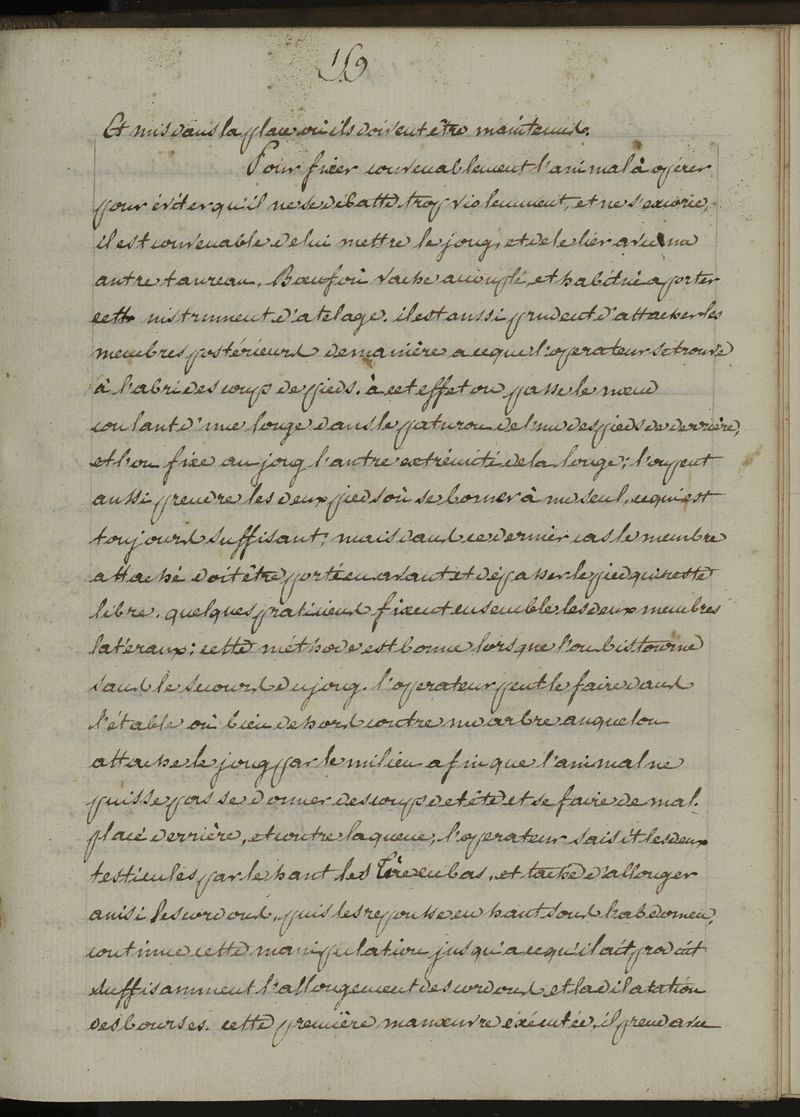 159
Et mis dans la place où ils doivent être maintenus.
Pour fixer convenablement l'animal à opérer
pour éviter qu'il ne se débatte trop violemment, et ne s'excorie,
il est convenable de lui mettre le joug, et de le lier avec un
autre taureau, Bœuf où vache accouplé, et habitué a porter
cette instrument d'atelage. il est aussi prudent d'attacher les
membres postérieurs de manière a ce que l'operateur se trouve
à l'abri des coup de pieds. à cet effet on passe le nœud
coulant d'une longe dans le paturon de l'un des pieds de derrière,
et l'on fixe au joug l'autre extrémité de la longe; l'on peut
aussi prendre les deux pieds où se borner à un seul, ce qui est
toujours suffisant; mais dans ce dernier cas le membre
attaché doit être porté en avant et dépasser le pied qui reste
libre. quelques praticiens fixent ensemble les deux membres
lateraux: cette méthode est bonne lorsque l'on bistourne
sans le secours du joug. l'operateur peut le faire dans
l'étable où bien dehors contre un arbre auquel on
attache le joug par le milieu afin que l'animal ne
puisse pas se donner des coups de tête et se faire de mal.
placé derrière, et contre la queue; l'operateur saisit les deux
testicules par le haut les tire en bas, et tache d'allonger
ainsi les cordons, puis les repousse en haut sous l'abdomen,
continue cette manipulation jusqu'a ce qu'il ait produit
suffisamment l'allongement des cordons et la dilatation
des bourses. cette première manœuvre éxécutée, il prend avec